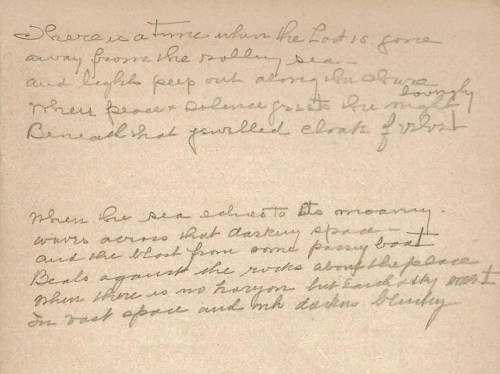 There is a time when the Last is gone
away from the rolling sea –
and lights peep out along the shore
When peace & silence greets the night lovingly
Beneath that jewelled cloak of velvet
When the sea echoes to its moaning
waves across that darkening space –
and the blast from some passing boat
Beats against the rocks above the place
When there is no horizon but Earth & sky meet
In vast space and ink darkness